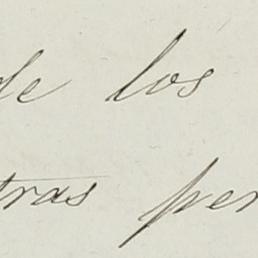 de los
tras per